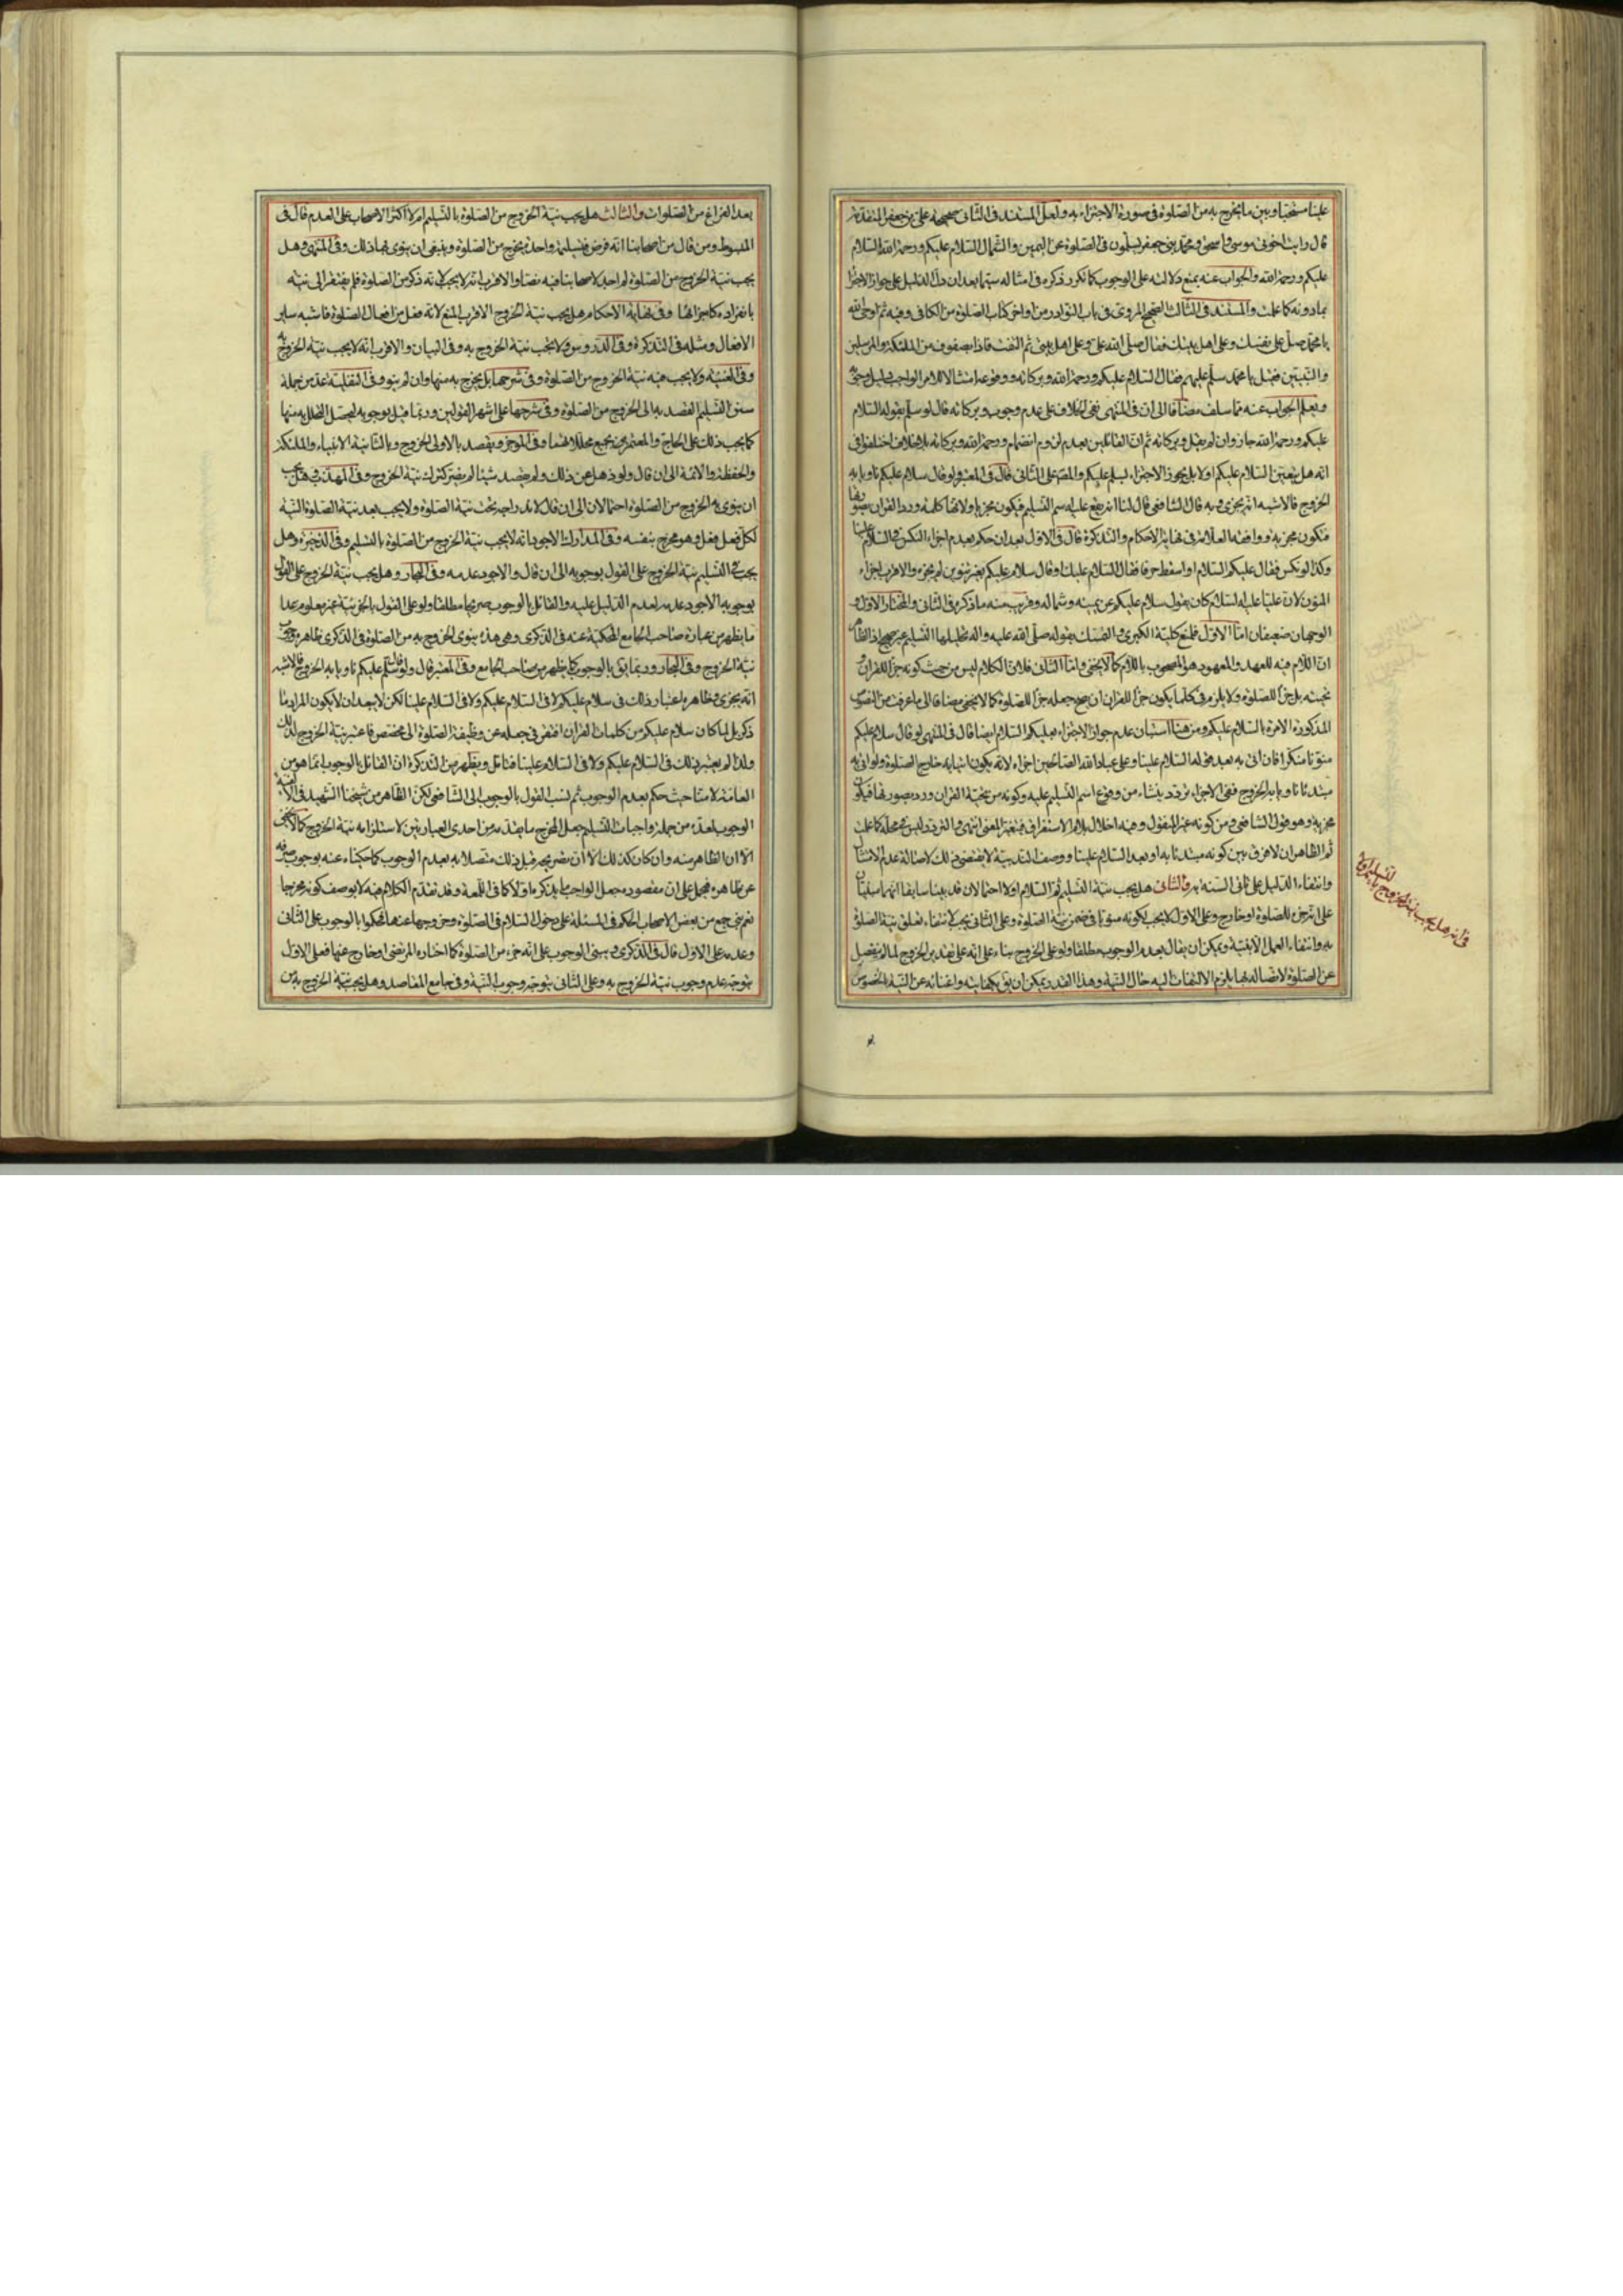 علينا مستحبا وبين ما يخرج به من الصلوة في صورة الاجتزاء به ولعل المستند في الثاني صحيحة علي بن جعفر المتقدمة
قال رايت اخوتي موسى واسحق ومحمد بني جعفر يسلمون في الصلوة عن اليمين والشمال السلام عليكم ورحمة الله السلام
عليكم ورحمة الله والجواب عنه بمنع دلالته على الوجوب كما تكرر ذكره في امثاله سيما بعد ان دل الدليل على جواز الاجتزاء
بما دونه كما علمت والمستند في الثالث الصحيح المروي في باب النوادر من اواخر كتاب الصلوة من الكافي وفيه ثم اوحى الله
يا محمد صل على نفسك وعلى اهل بيتك فقال صلى الله علي وعلى اهل بيتي ثم التفت فاذا بصفوف من الملئكة والمرسلين
والنبيين فقيل يا محمد سلم عليهم فقال السلام عليكم ورحمة الله وبركاته
ويعلم الجواب عنه مما سلف مضافا الى ان في المنتهى نفى الخلاف على عدم وجوب وبركاته قال لو سلم بقوله السلام
عليكم ورحمة الله جاز وان لم يقل وبركاته ثم ان القائلين بعدم لزوم انضمام ورحمة الله وبركاته بلا خلاف اختلفوا في
انه هل يتعين السلام عليكم اولا بل يجوز الاجتزاء بسلم عليكم والمص على الثاني قال في المعتبر لو قال سلام عليكم ناويا به
الخروج فالاشبه انه يجزي وبه قال الشافعي قال لنا انه يقع عليه اسم التسليم فيكون مجزيا ولانها كلمة ورد القران بصورتها
فتكون مجزية ووافقه العلامة في نهاية الاحكام والتذكرة قال في الاول بعد ان حكم بعدم اجزاء النكس في السلام علينا
وكذا لو نكس فقال عليكم السلام او اسقط حرفا فقال السلام عليك او قال سلام عليكم بغير تنوين لم يجزء والاقرب اجزاء
المنون لان عليا عليه السلام كان يقول سلام عليكم عن يمينه وشماله وقريب منه ما ذكره في الثاني والمختار الاول و
الوجهان ضعيفان اما الاول فلمنع كلية الكبرى والتمسك بقوله صلى الله عليه واله تحليلها التسليم غير صحيح اذ الظاهر
ان اللام فيه للعهد والمعهود هو المصحوب باللام كما لا يخفى واما الثاني فلان الكلام ليس من حيث كونه جزأ للقران
بل جزأ للصلوة ولا يلزم في كلما يكون جزأ للقران ان يصح جعله جزأ للصلوة كما لا يخفى مضافا الى ما عرفت من النصوص
المذكورة الامرة بالسلام عليكم ومن هنا استبان عدم جواز الاجتزاء بعليكم السلام ايضا قال في المنتهى لو قال سلام عليكم
منونا منكرا فان اتى به بعد قوله السلام علينا وعلى عباد الله الصالحين اجزاء لانه يكون اتيا به خارج الصلوة ولو اتى به
مبتدئا ناويا به الخروج ففي الاجزاء تردد ينشاء من وقوع اسم التسليم عليه وكونه من تحية القران وورد بصورتها فيكون
مجزية وهو قول الشافعي ومن كونه غير المنقول وفيه اخلال بلام الاستغراق فيتغير المعنى انتهى والتردد ليس في محله كما علمت
ثم الظاهر ان لا فرق بين كونه مبتدئا به او بعد السلام علينا ووصف الندبية لا يقتضي ذلك لاصالة عدم الامتثال
وانتفاء الدليل على ثاني السنة به والثاني هل يجب نية التسليم ثم السلام اولا احتمالان قد بينا سابقا انهما مبنيان
على انه جزء للصلوة او خارج وعلى الاول لا يجب لكونه منويا في ضمن نية الصلوة وعلى الثاني يجب لانتفاء تعلق نية الصلوة
به وانتفاء العمل الا بنية ويمكن ان يقال بعدم الوجوب مطلقا ولو على الخروج بناء على انه على تقدير الخروج لما لم ينفصل
عن الصلوة لاتصاله بها يلزم الالتفات اليه حال النية وهذا القدر يمكن ان يق بكفايته واغنائه عن النية بالخصوص
في انه هل يجب نية الخروج
بعد الفراغ من الصلوات والثالث هل يجب نية الخروج من الصلوة بالتسليم ام لا اكثر الاصحاب على العدم قال في
المبسوط ومن قال من اصحابنا انه فرض فتسليمة واحدة يخرج من الصلوة وينبغي ان ينوي بها ذلك وفي المنتهى وهل
يجب نية الخروج من الصلوة لم اجد لاصحابنا فيه نصا والاقرب انه لا يجب لانه ذكر من الصلوة فلم يفتقر الى نية
بانفراده كاجزائها وفي نهاية الاحكام هل يجب نية الخروج الاقرب المنع لانه فعل من افعال الصلوة فاشبه ساير
الافعال ومثله في التذكرة وفي الدروس ولا يجب نية الخروج به وفي البيان والاقرب انه لا يجب نية الخروج به
ولا يجب فيه نية الخروج من الصلوة وفي شرحها بل يخرج به منها وان لم ينو وفي النفلية عد من جملة
سنن التسليم القصد به الى الخروج من الصلوة وفي شرحها على اشهر القولين وربما قيل بوجوبه ليحصل التحلل به منها
كما يجب ذلك على الحاج والمعتمر وفي الموجز ويقصد بالاولى الخروج وبالثانية الانبياء والملئكة
والحفظة والائمة الى ان قال ولو ذهل عن ذلك ولم يقصد شيئا لم يضر كترك نية الخروج وفي المهذب هل يجب
ان ينوي به الخروج من الصلوة احتمالان الى ان قال لاندراجه تحت نية الصلوة ولا يجب بعد نية الصلوة النية
لكل فعل فعل وهو مخرج بنفسه وفي المدارك الاجود انه لا يجب نية الخروج من الصلوة بالتسليم وفي الذخيرة وهل
يجب في التسليم نية الخروج على القول بوجوبه الى ان قال والاجود عدمه وفي البحار وهل يجب نية الخروج على القول
بوجوبه الاجود عدمه لعدم الدليل عليه والقائل بالوجوب صريحا مطلقا ولو على القول بالجزئية غير معلوم عدا
ما يظهر من عبارة صاحب الجامع المحكية عنه في الذكرى وهي هذه ينوي الخروج به من الصلوة في الذكرى ظاهره وجوب
نية الخروج وفي البحار وربما يق بالوجوب كما يظهر من صاحب الجامع وفي المعتبر قال ولو قال سلم عليكم ناويا به الخروج فالاشبه
انه يجزي فظاهره اعتبار ذلك في سلام عليكم لا في السلام عليكم ولا في السلام علينا لكن لا يبعد ان لا يكون المراد ما
ذكر بل لما كان سلام عليكم من كلمات القران افتقر في جعله عن وظيفة الصلوة الى مخصص فاعتبر نية الخروج لذلك
ولذا لم يعتبر ذلك في السلام عليكم ولا في السلام علينا فتامل ويظهر من التذكرة ان القائل بالوجوب انما هو من
العامة لا منا حيث حكم بعدم الوجوب ثم نسب القول بالوجوب الى الشافعي لكن الظاهر من شيخنا الشهيد في الالفية
الوجوب لعده من جملة واجبات التسليم جعل المخرج ما يقدمه من احدى العبارتين لاستلزامه نية الخروج كما لا يخفى
الا ان الظاهر منه وان كان كذلك الا ان تصريحه قبيل ذلك متصلا به بعدم الوجوب كما حكيناه عنه يوجب صرفه
عن ظاهره فيحمل على ان مقصوده جعل الواجب ما يذكره اولا كما في اللمعة وقد تقدم الكلام فيه لا بوصف كونه مخرجا
نعم بنى جمع من بعض الاصحاب الحكم في المسئلة على دخول السلام في الصلوة وخروجها عنها فحكموا بالوجوب على الثاني
وعدمه على الاول قال في الذكرى ويبنى الوجوب على انه جزء من الصلوة كما اختاره المرتضى او خارج عنها فعلى الاول
يتوجه عدم وجوب نية الخروج به وعلى الثاني يتوجه وجوب النية وفي جامع المقاصد وهل يجب نية الخروج به